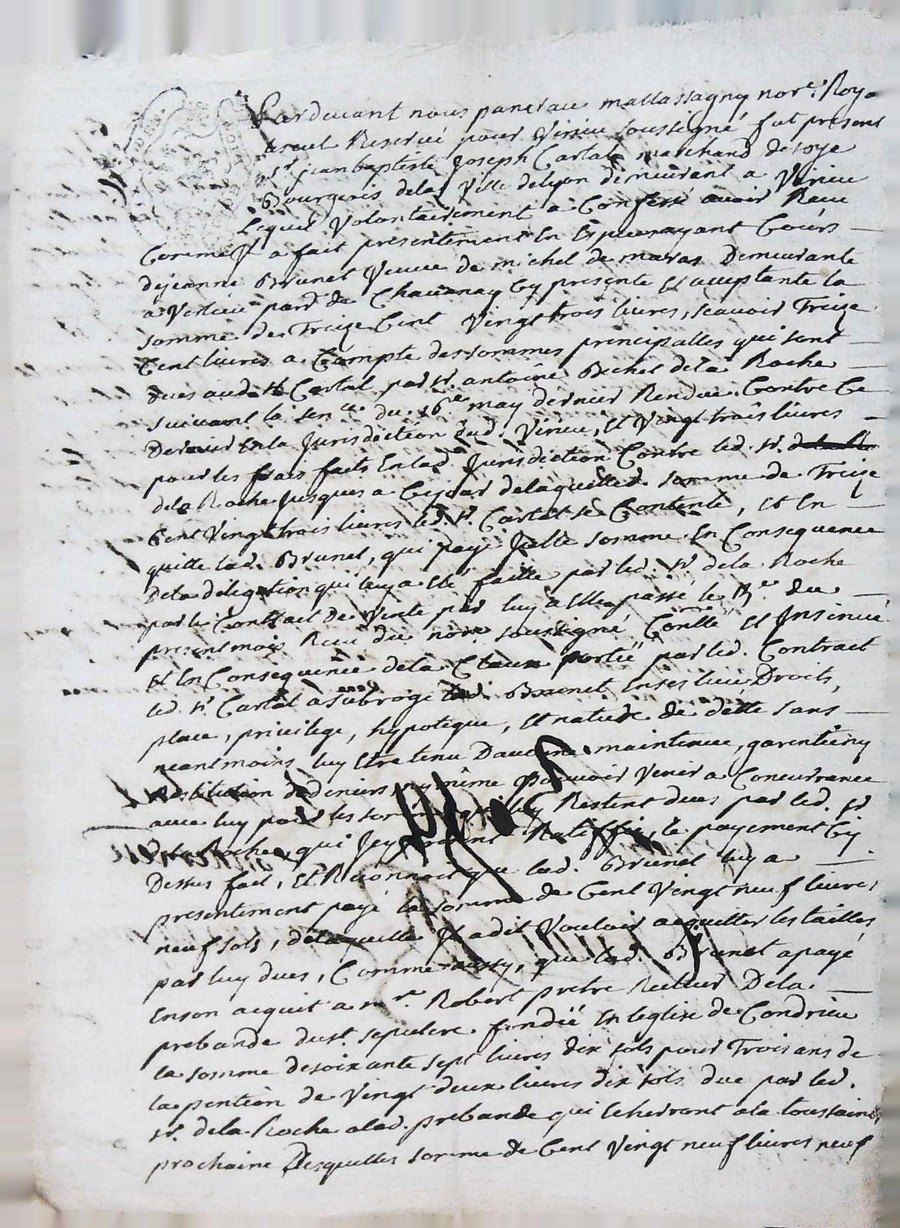 Pardevant nous pancrace mallassagny nore. Roya
Reservé pour Virieu soussigné fut present
sr. jean baptiste Joseph Castal marchand de soye
Bourgeois de la Ville de lyon demeurant a Virieu
Lequel Volontairement a Confessé avoir Receu
Comme Il a fait presentement En Especes ayant Cours
de jeanne Brunet Veuve de michel de maras Demeurante
a Verlieu parr. de Chavanay Cy presente Et acceptante la
somme de Treize Cent Vingt trois livres, scavoir Treize
Cent livres a Compte des sommes principalles qui sont
dues aud. sr. Castal par sr. antoine Bechet de la Roche
suivant la sence. du 16e. may dernier Rendue Contre Ce
Dernier En la Jurisdiction dud. Virieu, Et Vingt trois livres
pour les frais faits En lad. Jurisdiction Contre led. sr.
de la Roche Jusques a Ce jour de laquelle somme de Treize
Cent Vingt trois livres led. sr. Castal se Contente, Et En
quitte lad. Brunet, qui paye Jcelle somme En Consequence
de la délégation qui luy a Esté faitte par led. sr. de la Roche
par le Contract de Vente par luy a Elle passé le du
present mois Receu du nore soussigné Conllé Et Insinué
Et En Consequence de la Clause portée par led. Contract
led. sr. Castal a subrogé lad. Brunet En ses lieu Droits,
place, privilege, hypoteque, Et nature de dette sans
neantmoins luy Estre tenu D'aucune maintenue, garentie ny
restitution de deniers ny même pouvoir Venir a Concurrance
avec luy pour les sommes qui luy Restent dues par led. sr
de la Roche, qui Jcy present Ratiffie, le payement Cy
Dessus fait, Et Reconnoit que lad. Brunet luy a
presentement payé la somme de Cent Vingt neuf livres
neuf sols, de laquelle Il a dit Vouloir acquitter les tailles
par luy dues, Comme aussy, que lad. Brunet a payé
En son acquit a mre. Robert pretre Recteur De la
prebande du st. sepulcre fondée En leglise de Condrieu
la somme de soixante sept livres dix sols pour Trois ans de
la pention de Vingt deux livres dix sols due par led.
sr. de la Roche a lad. prebande qui Echerront a la toussaint
prochaine Desquelles somme de Cent Vingt neuf livres neuf